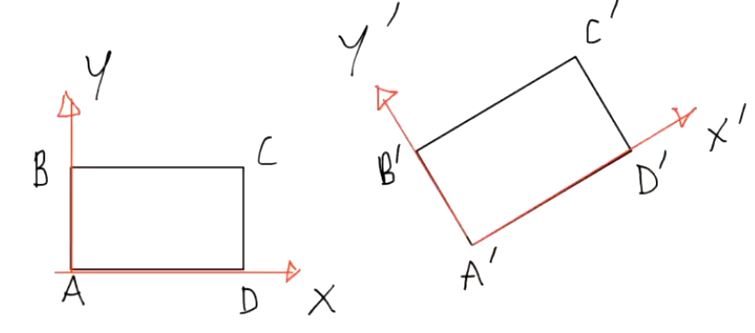 Y
B
C
A
D
X
Y'
C'
B'
X'
D'
A'